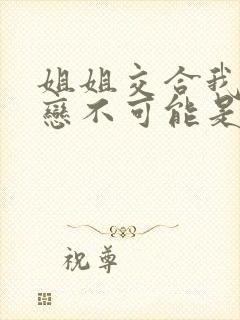 姐姐交合我
戀不可能是
祝尊